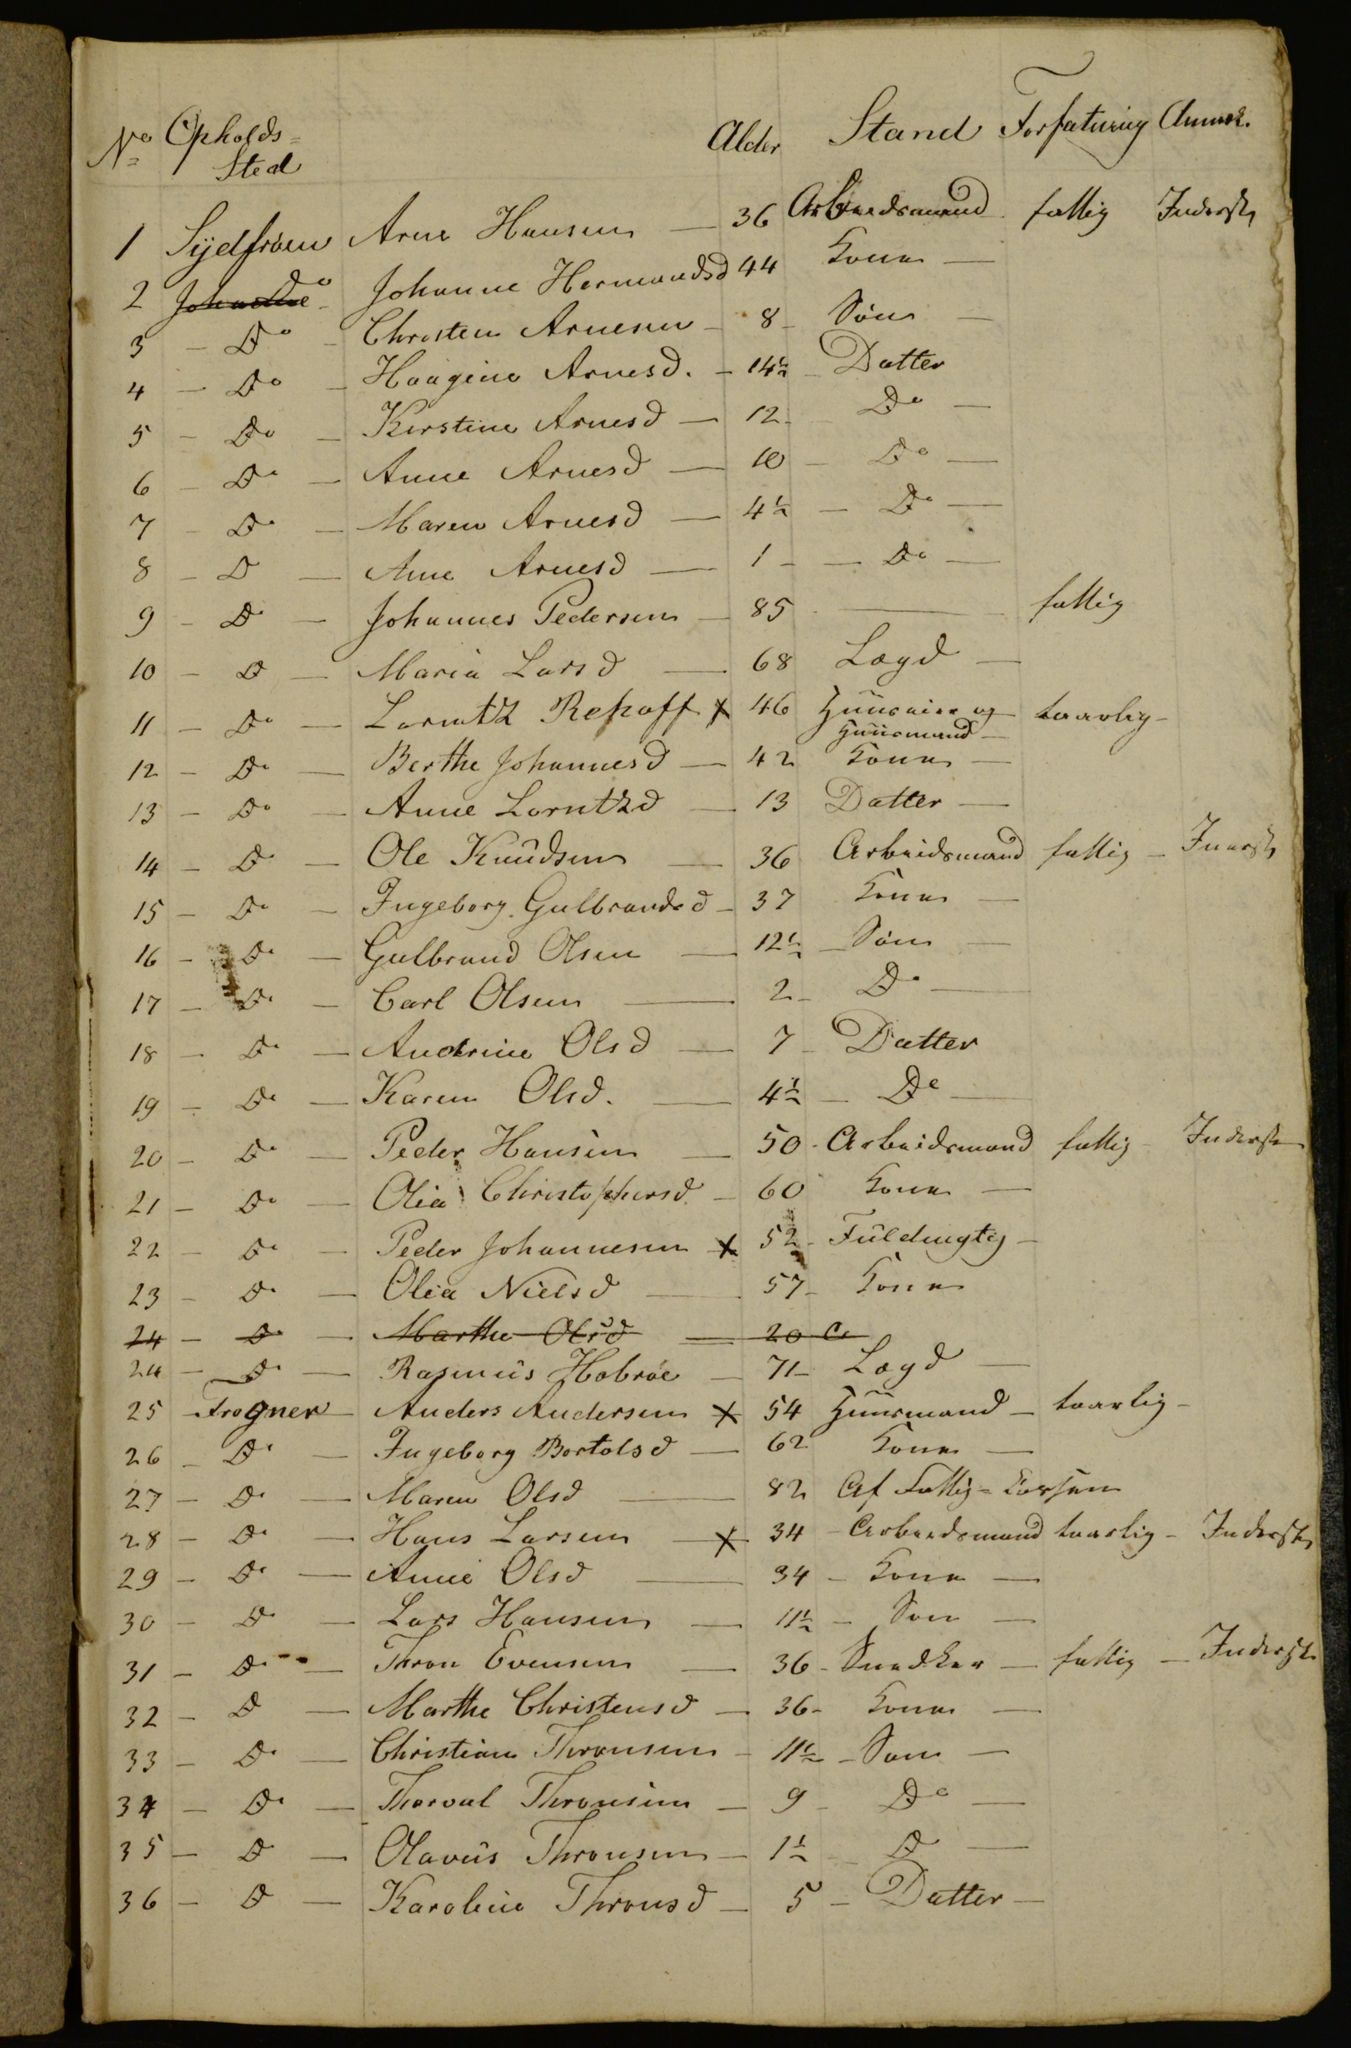 No Opholds= Sted Alder Stand Forfatning Anmærk.
1 Sydfroen Arne Hansen — 36 Arbeidsmand fattig Inderste
2 Do Johanne Hermandsd 44 Kone —
3 — Do — Christen Arnesen — 8 — Søn —
4 — Do — Haagine Arnesd. — 14½ — Datter
5 — Do — Kirstine Arnesd — 12 — Do —
6 — Do — Anne Arnesd — 10 — Do —
7 — Do — Maren Arnesd — 4½ — Do —
8 — D — Ane Arnesd — 1 — Do —
9 — Do — Johannes Pedersen — 85 — fattig
10 — D — Maria Larsd — 68 Lægd —
11 — Do — Lorentz Rehoff x 46 Huuseier og taarlig —
Huusmand —
12 — Do — Berthe Johannesd — 42 Kone —
13 — Do — Anne Lorntzd — 13 Datter —
14 — D — Ole Knudsen — 36 Arbeidsmand fattig — Inerste
15 — Do — Ingeborg Gulbrandsd — 37 Kone —
16 — Do — Gulbrand Olsen — 12½ — Søn —
17 — Do — Carl Olsen — 2 — Do —
18 — Do — Andrine Olsd — 7 — Datter
19 — Do — Karen Olsd. — 4½ — Do —
20 — Do — Peder Hansen — 50 — Arbeidsmand fattig — Inderste
21 — Do — Olia Christophersd — 60 Kone —
22 — Do — Peder Johannesen x 52 — Fuldmygtig —
23 — Do — Olia Nielsd — 57 — Kone
24 — D — Marthe Olsd — 20
24 — Do — Rasmus Habroe — 71 — Lægd —
25 — Frogner — Anders Andersen x 54 Huusmand — taarlig —
26 — Do — Ingeborg Bortolsd — 62 Kone —
27 — Do — Maren Olsd — 82 Af Fattig=Kassen
28 — Do — Hans Larsen x 34 — Arbeidsmand taarlig — Inderste
29 — Do — Anne Olsd — 34 — Kone —
30 — D — Lars Hansen — 11½ — Søn —
31 — Do — Thron Evensen — 36 — Snedker — fattig — Inderste
32 — D — Marthe Christensd — 36 — Kone —
33 — Do — Christian Thronsen — 11½ — Søn —
34 — Do — Thorval Thronsen — 9 — Do —
35 — D — Olavus Thronsen — 1½ — D —
36 — D — Karoline Thronsd — 5 — Datter —